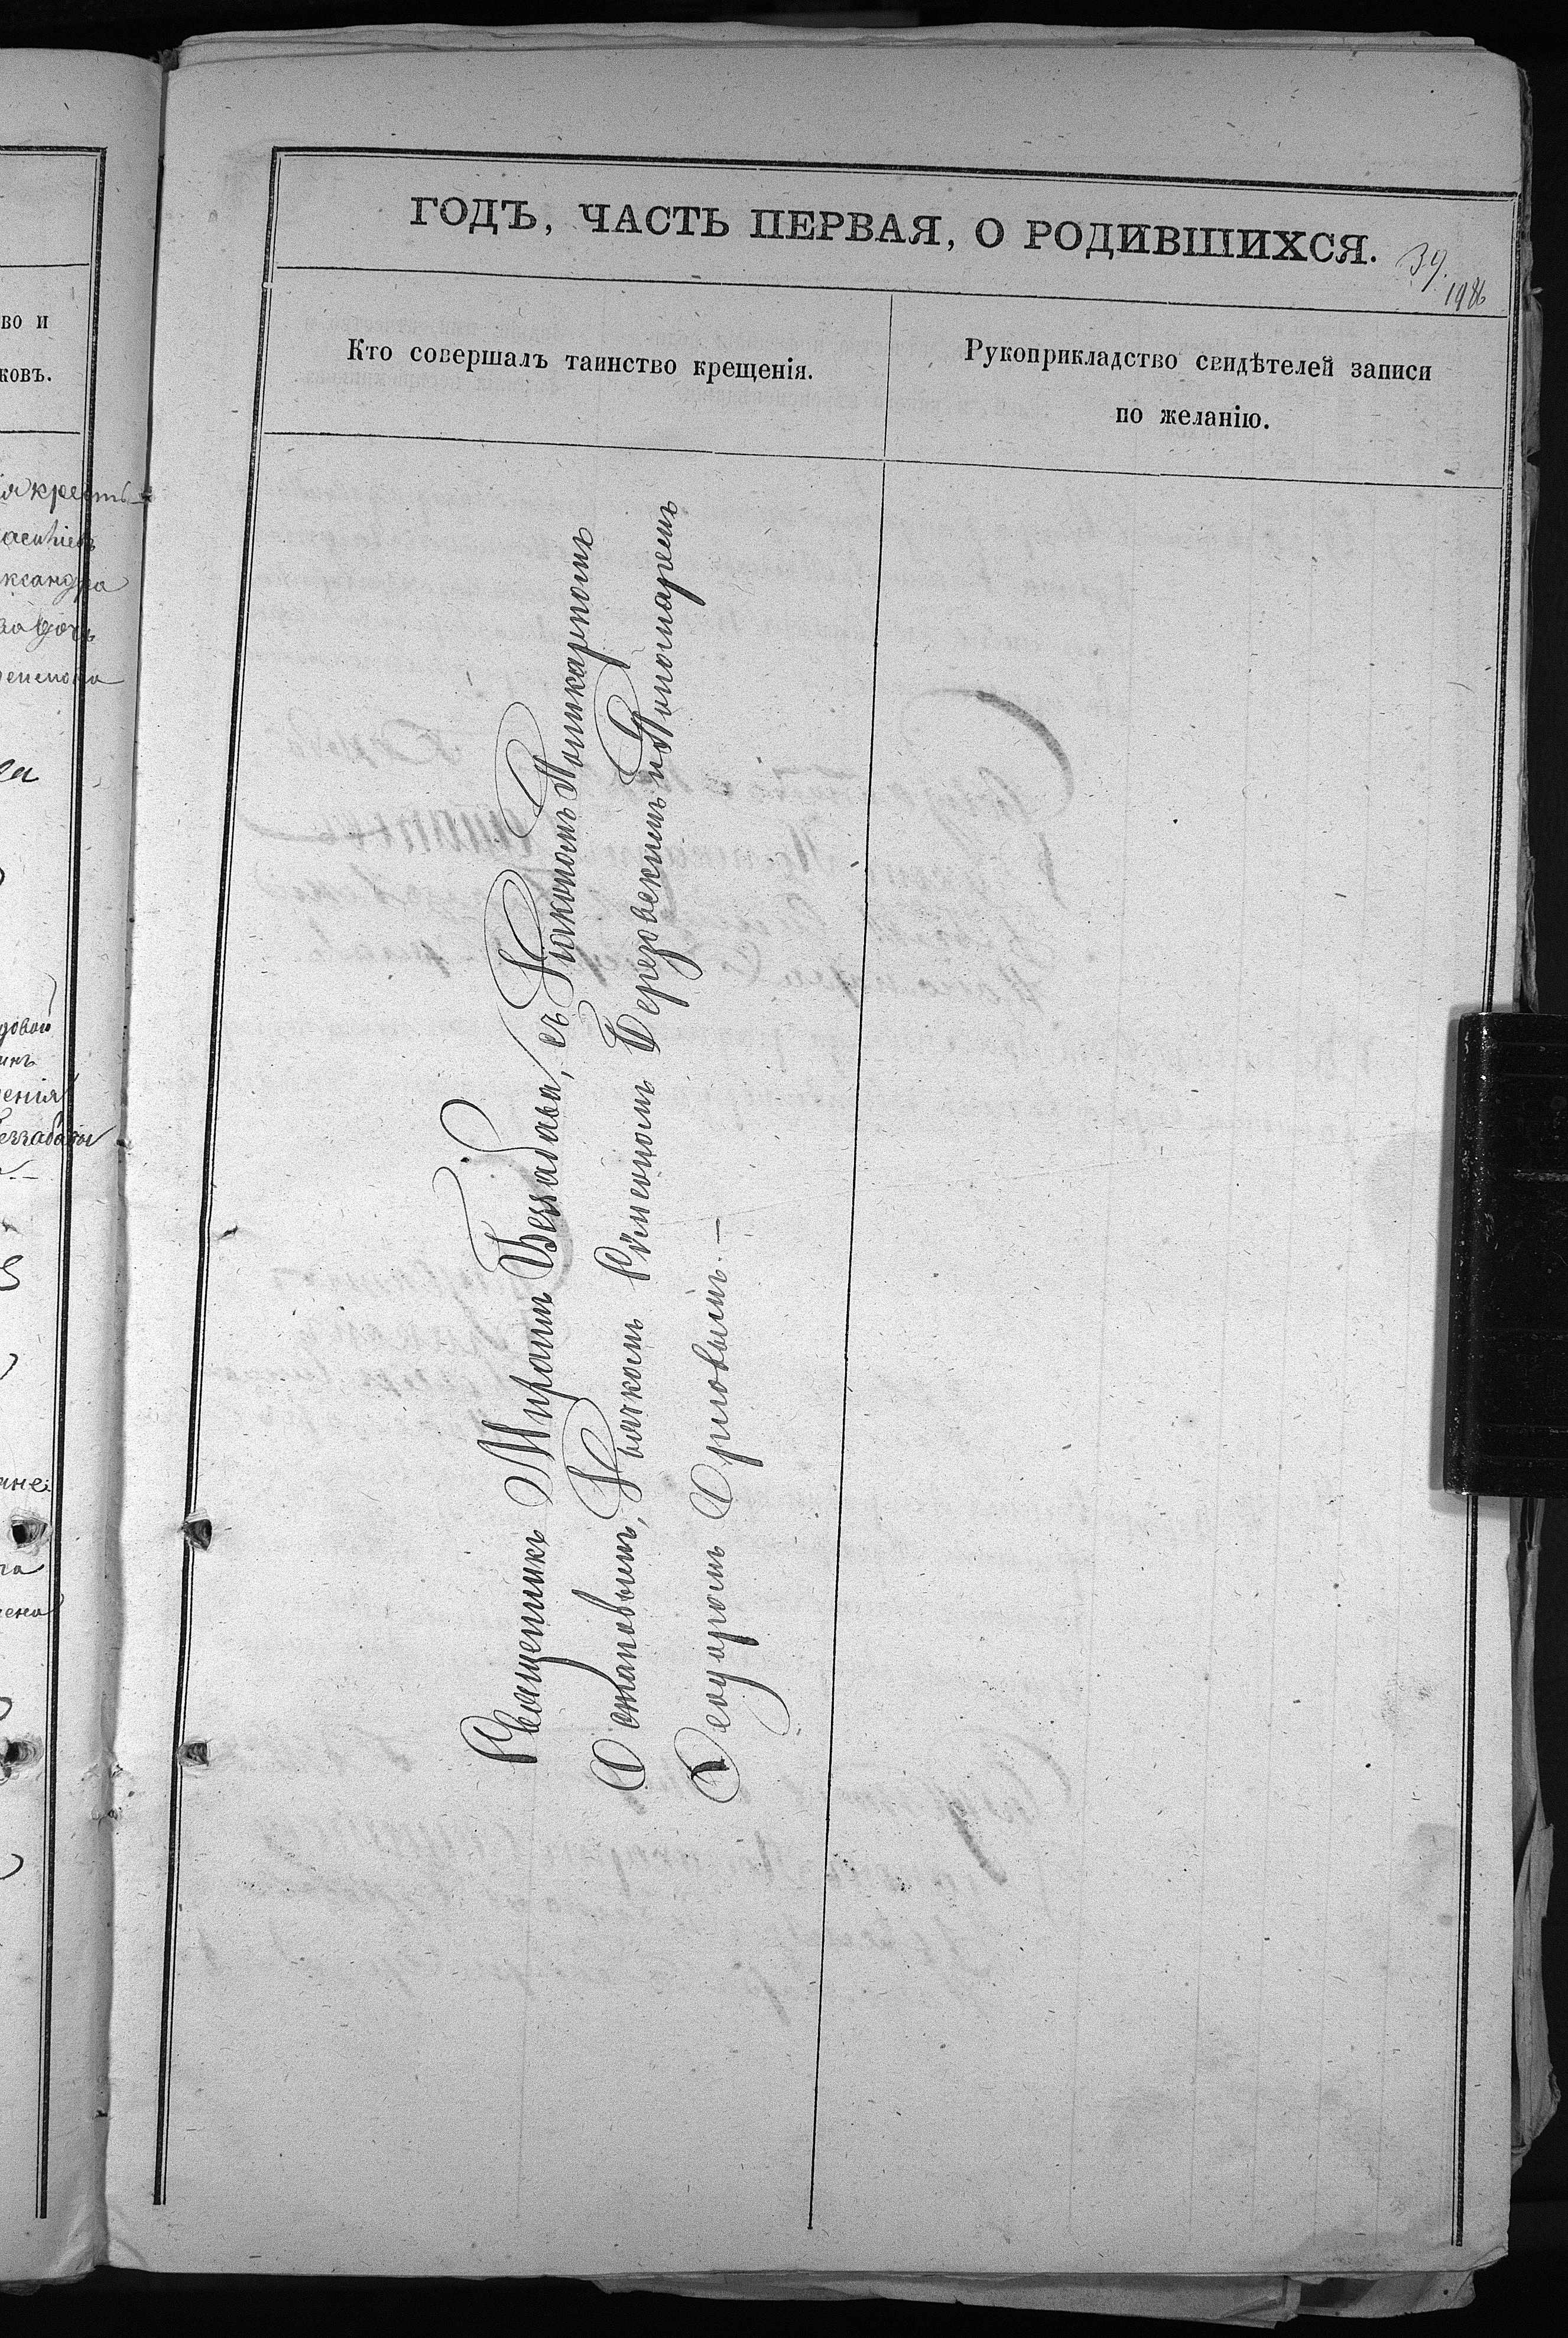 ГОДЪ, ЧАСТЬ ПЕРВАЯ, О РОДИВШИХСЯ.
39.
1986
Кто совершалъ таинство крещенія.
Рукоприкладство свидѣтелей записи
по желанію.
Священникъ Миронъ Беззабава, съ Діакономъ Поликарпомъ
Остаповымъ, Дьячкомъ Сѵмеономъ Березовскимъ и Пономаремъ
Ѳеодоромъ Орловымъ. —
во и
ковъ.
я крест
ксандра
дочь
довой
инъ
ения
еззабавы